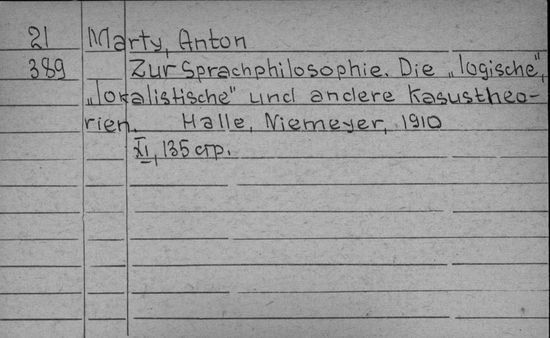 21 Marty, Anton
389 Zur Sprachphilosophie. Die „logische",
„lokalistische" und andere Kasustheo-
rien. Halle, Niemeyer, 1910
XI, 135 стр.